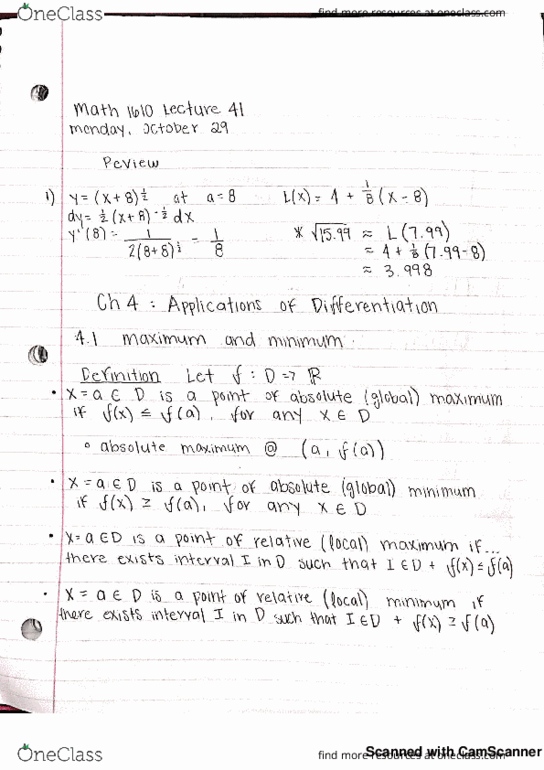 OneClass
find more resources at oneclass.com
Math 1610 Lecture 41
Monday, October 29
Review
1) y = (x+8)^½ at a=8 L(x) = 4 + 1/8 (x-8)
dy = ½ (x+8)^-½ dx
y'(8) = 1/(2(8+8)^½) = 1/8
* √15.99 ≈ L(7.99)
= 4 + ⅛ (7.99-8)
≈ 3.998
Ch 4 : Applications of Differentiation
4.1 maximum and minimum
Definition Let f : D → ℝ
• x=a ∈ D is a point of absolute (global) maximum
if f(x) ≤ f(a), for any x ∈ D
° absolute maximum @ (a, f(a))
• x = a ∈ D is a point of absolute (global) minimum
if f(x) ≥ f(a), for any x ∈ D
• x=a ∈ D is a point of relative (local) maximum if...
there exists interval I in D such that I ∈ D + f(x) ≤ f(a)
• x = a ∈ D is a point of relative (local) minimum if
there exists interval I in D such that I ∈ D + f(x) ≥ f(a)
OneClass
find more resources at oneclass.com
Scanned with CamScanner